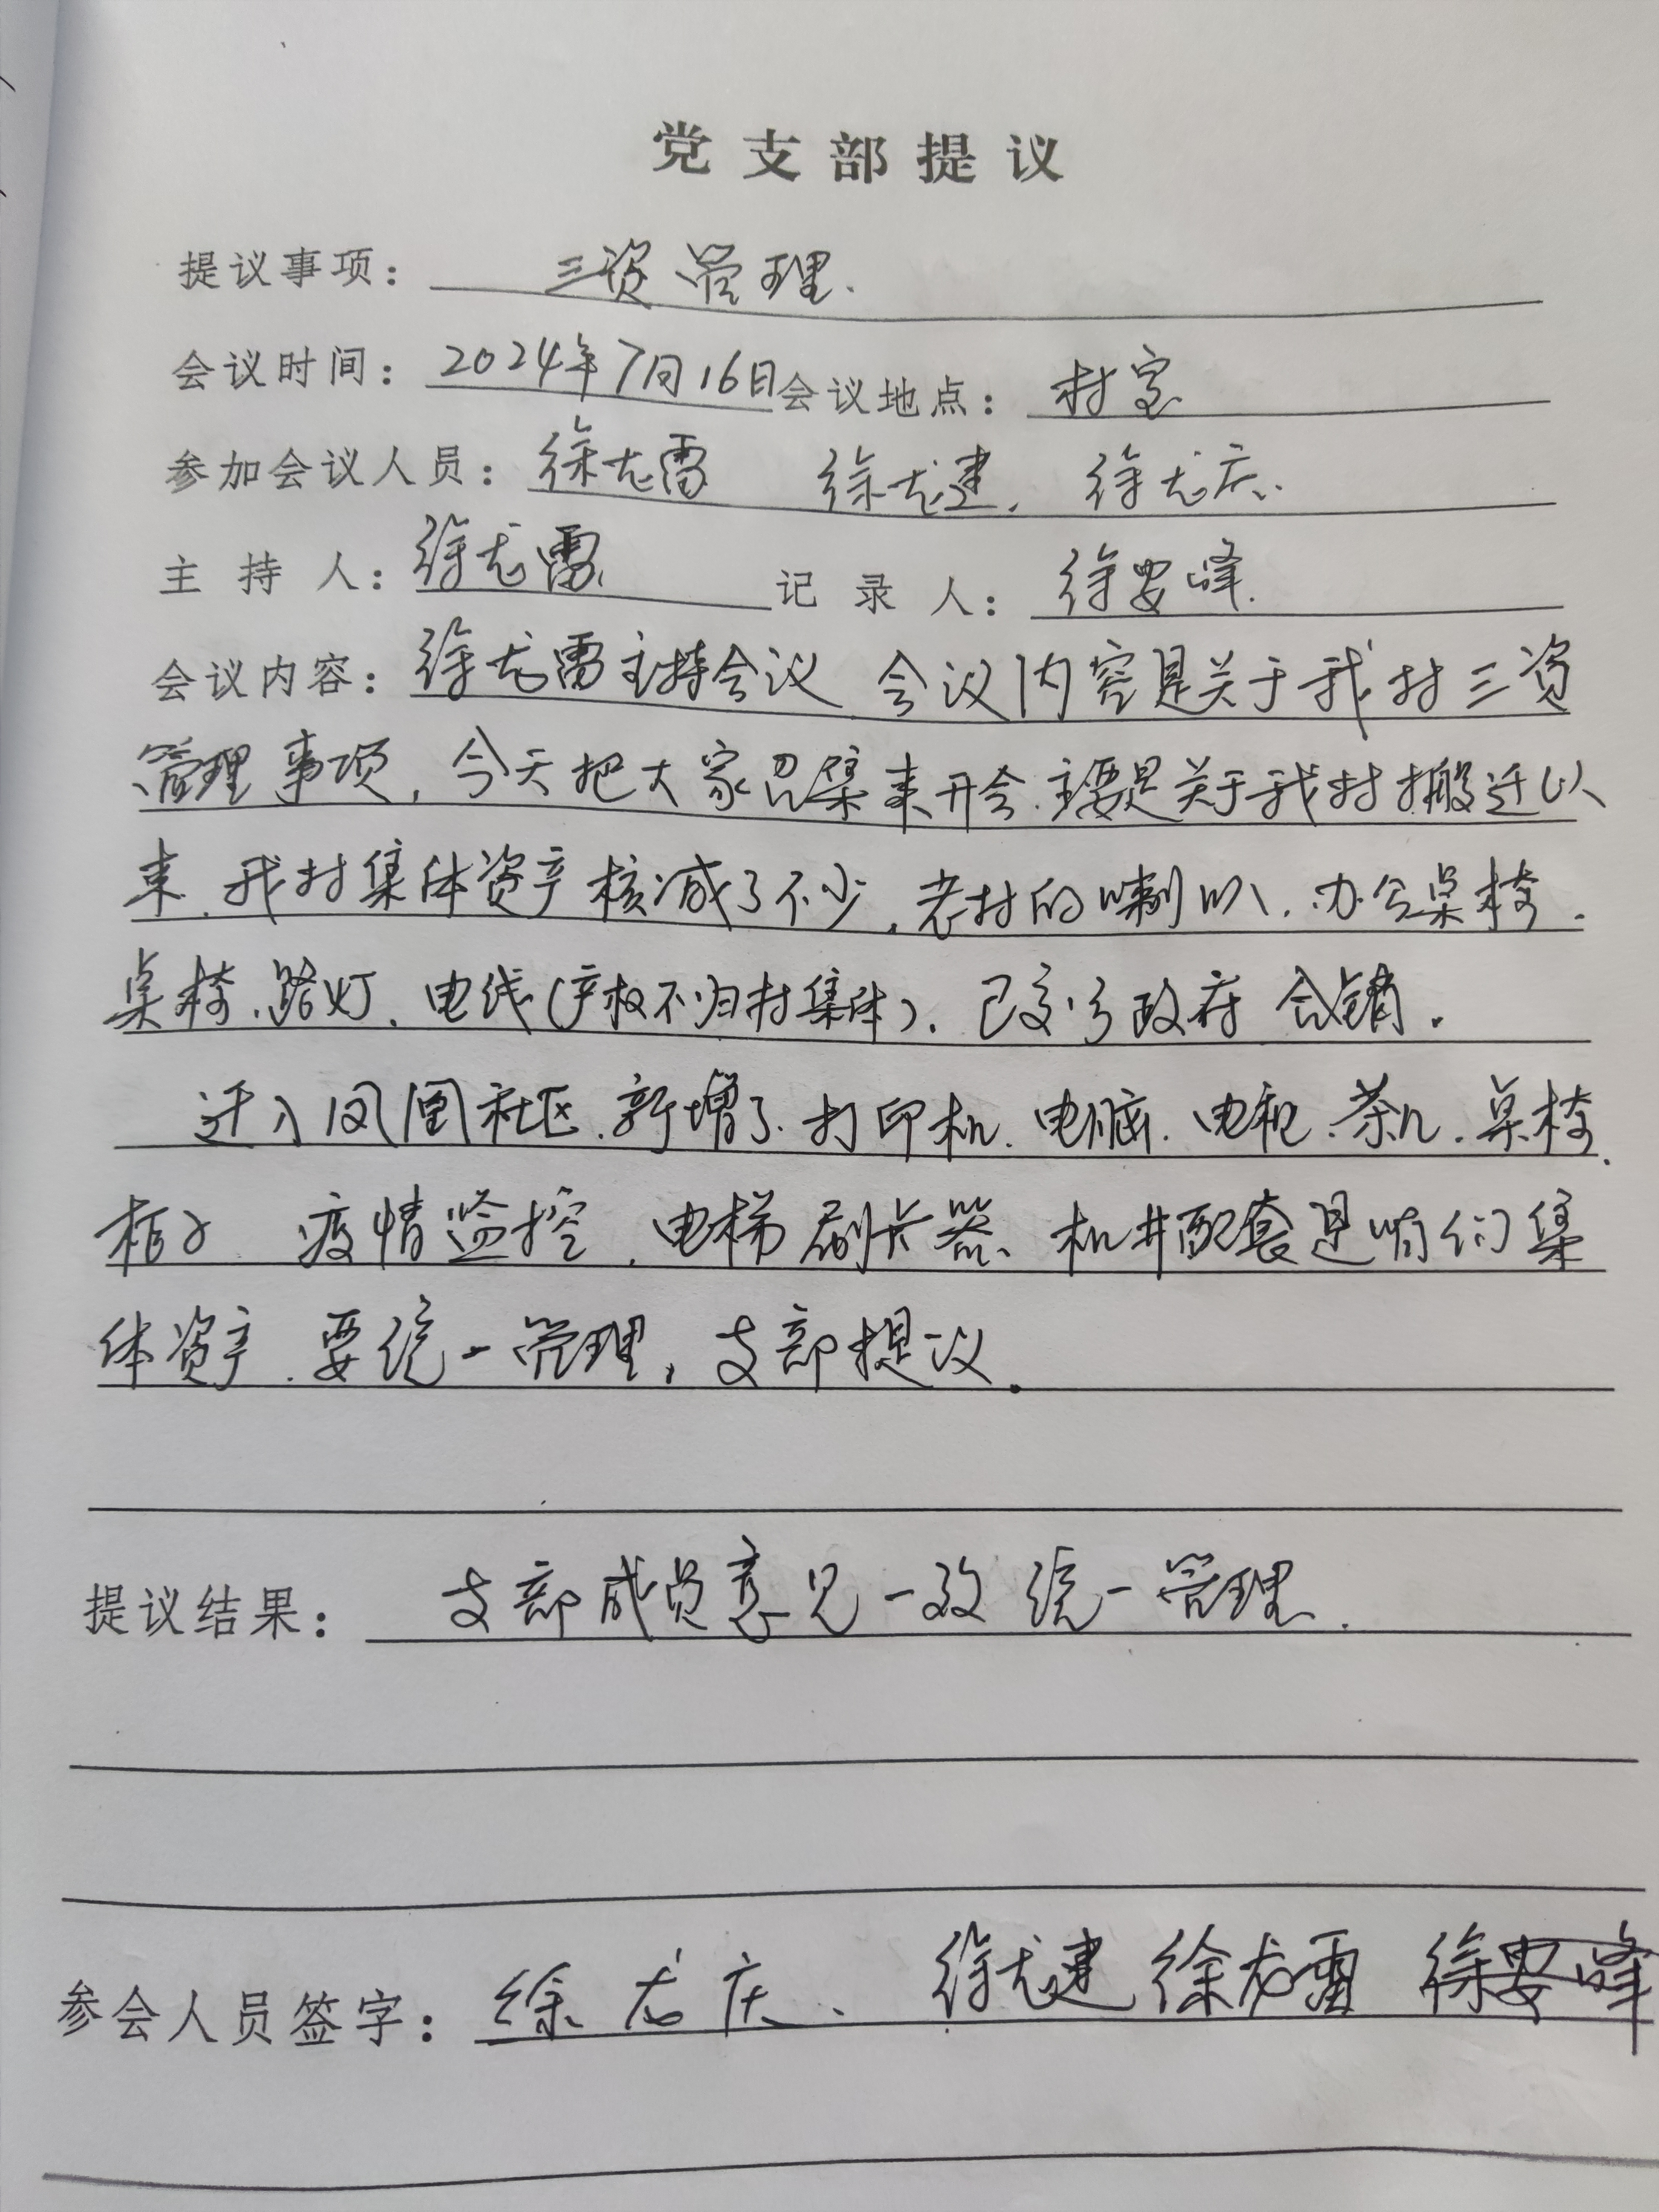 党支部提议
提议事项：三资管理.
会议时间：2024年7月16日 会议地点：村室
参加会议人员：徐龙雷 徐龙建. 徐龙庆.
主持人：徐龙雷 记录人：徐安峰.
会议内容：徐龙雷主持会议 会议内容是关于我村三资
管理事项，今天把大家召集来开会.主要是关于我村搬迁以
来.我村集体资产核减了不少.老村的喇叭.办公桌椅.
桌椅.路灯.电线(产权不归村集体).已交与政府 销.
迁入凤凰社区.新增了.打印机.电脑.电视.茶几.桌椅.
柜子 疫情监控.电梯刷卡器、机井配套是咱们集
体资产.要统一管理，支部提议.
提议结果：支部成员意见一致 统一管理.
参会人员签字：徐龙庆、徐龙建 徐龙雷 徐安峰